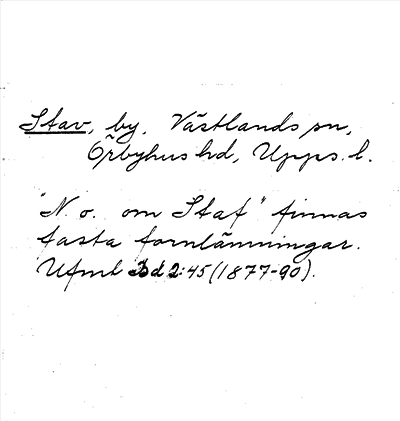 Stav, by. Västlands sn,
Örbyhus hd, Upps. l.
"N. o. om Staf" finnas
fasta fornlämningar.
Ufmt Bd 2:45 (1877-90).